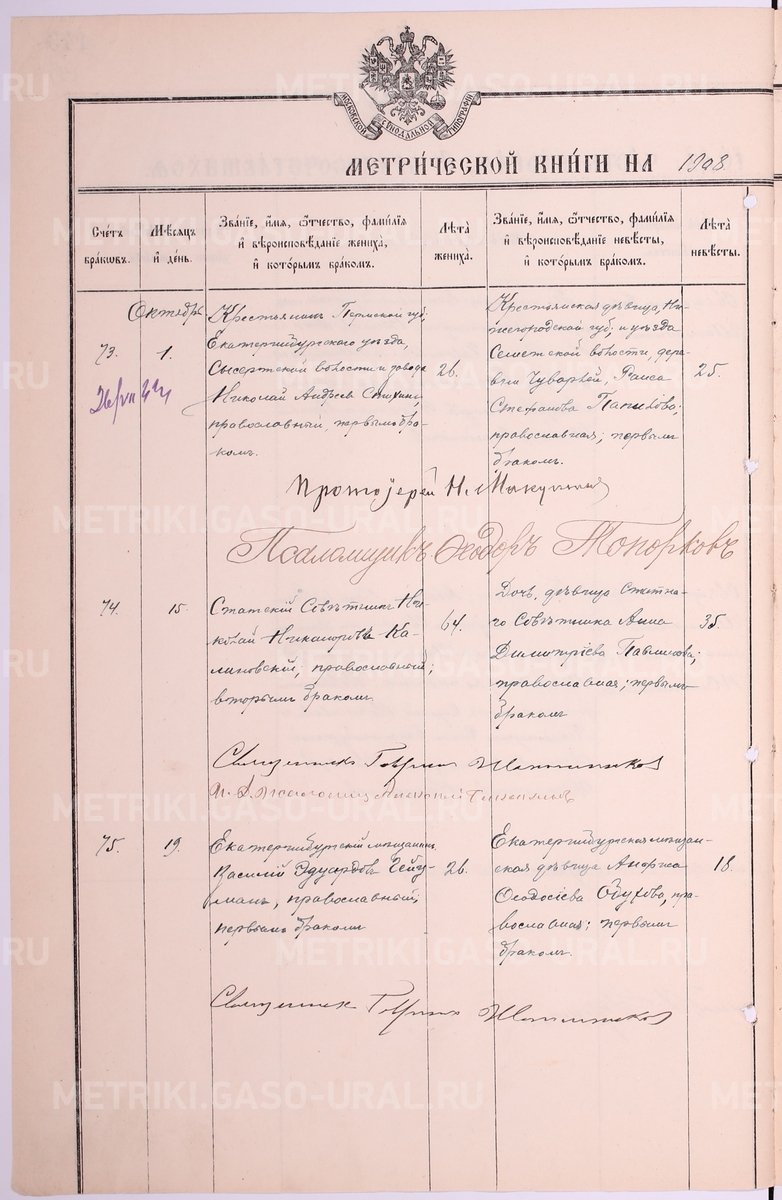 МОСКОВСКОЙ СИНОДАЛЬНОЙ ТИПОГРАФИИ
МЕТРИ́ЧЕСКОЙ КНИ́ГИ НА 1908
Сче́тъ бра́кѡвъ.
Мѣ́сѧцъ и҆ де́нь.
Зва́нїе, и҆́мѧ, ѻ҆́тчество, фами́лїѧ и҆ вѣроисповѣ́данїе жениха̀, и҆ кото́рымъ бра́комъ.
Лѣта̀ жениха̀.
Зва́нїе, и҆́мѧ, ѻ҆́тчество, фами́лїѧ и҆ вѣроисповѣ́данїе невѣ́сты, и҆ кото́рымъ бра́комъ.
Лѣта̀ невѣ́сты.
Октябрь
73.
1.
Крестьянинъ Пермской губ.,
Екатеринбургского уѣзда,
Сысертской волости и завода
Николай Андреевъ
православный, первымъ бра-
комъ.
26.
Крестьянская дѣвица, Ни-
жегородской губ. и уѣзда
волости, дере-
вни Раиса
Стефанова
православная; первымъ
бракомъ.
25.
Протоіерей Н.
Псаломщикъ Ѳеодоръ Топорковъ
74.
15.
Статскій Совѣтникъ Ни-
колай Никаноровъ Ка-
линовскій, православный;
вторымъ бракомъ
64.
Дочь, дѣвица Статска-
го Совѣтника Анна
Димитріева
православная; первымъ
бракомъ
35
Священникъ Гавріилъ
75.
19.
Екатеринбургскій мѣщанинъ
Василій Эдуардовъ Гейц-
манъ, православный;
первымъ бракомъ
26.
Екатеринбургская мѣщан-
ская дѣвица Анфиса
Ѳеодосіева Обухова, пра-
вославная; первымъ
бракомъ.
18.
Священникъ Гавріилъ
METRIKI.GASO-URAL.RU